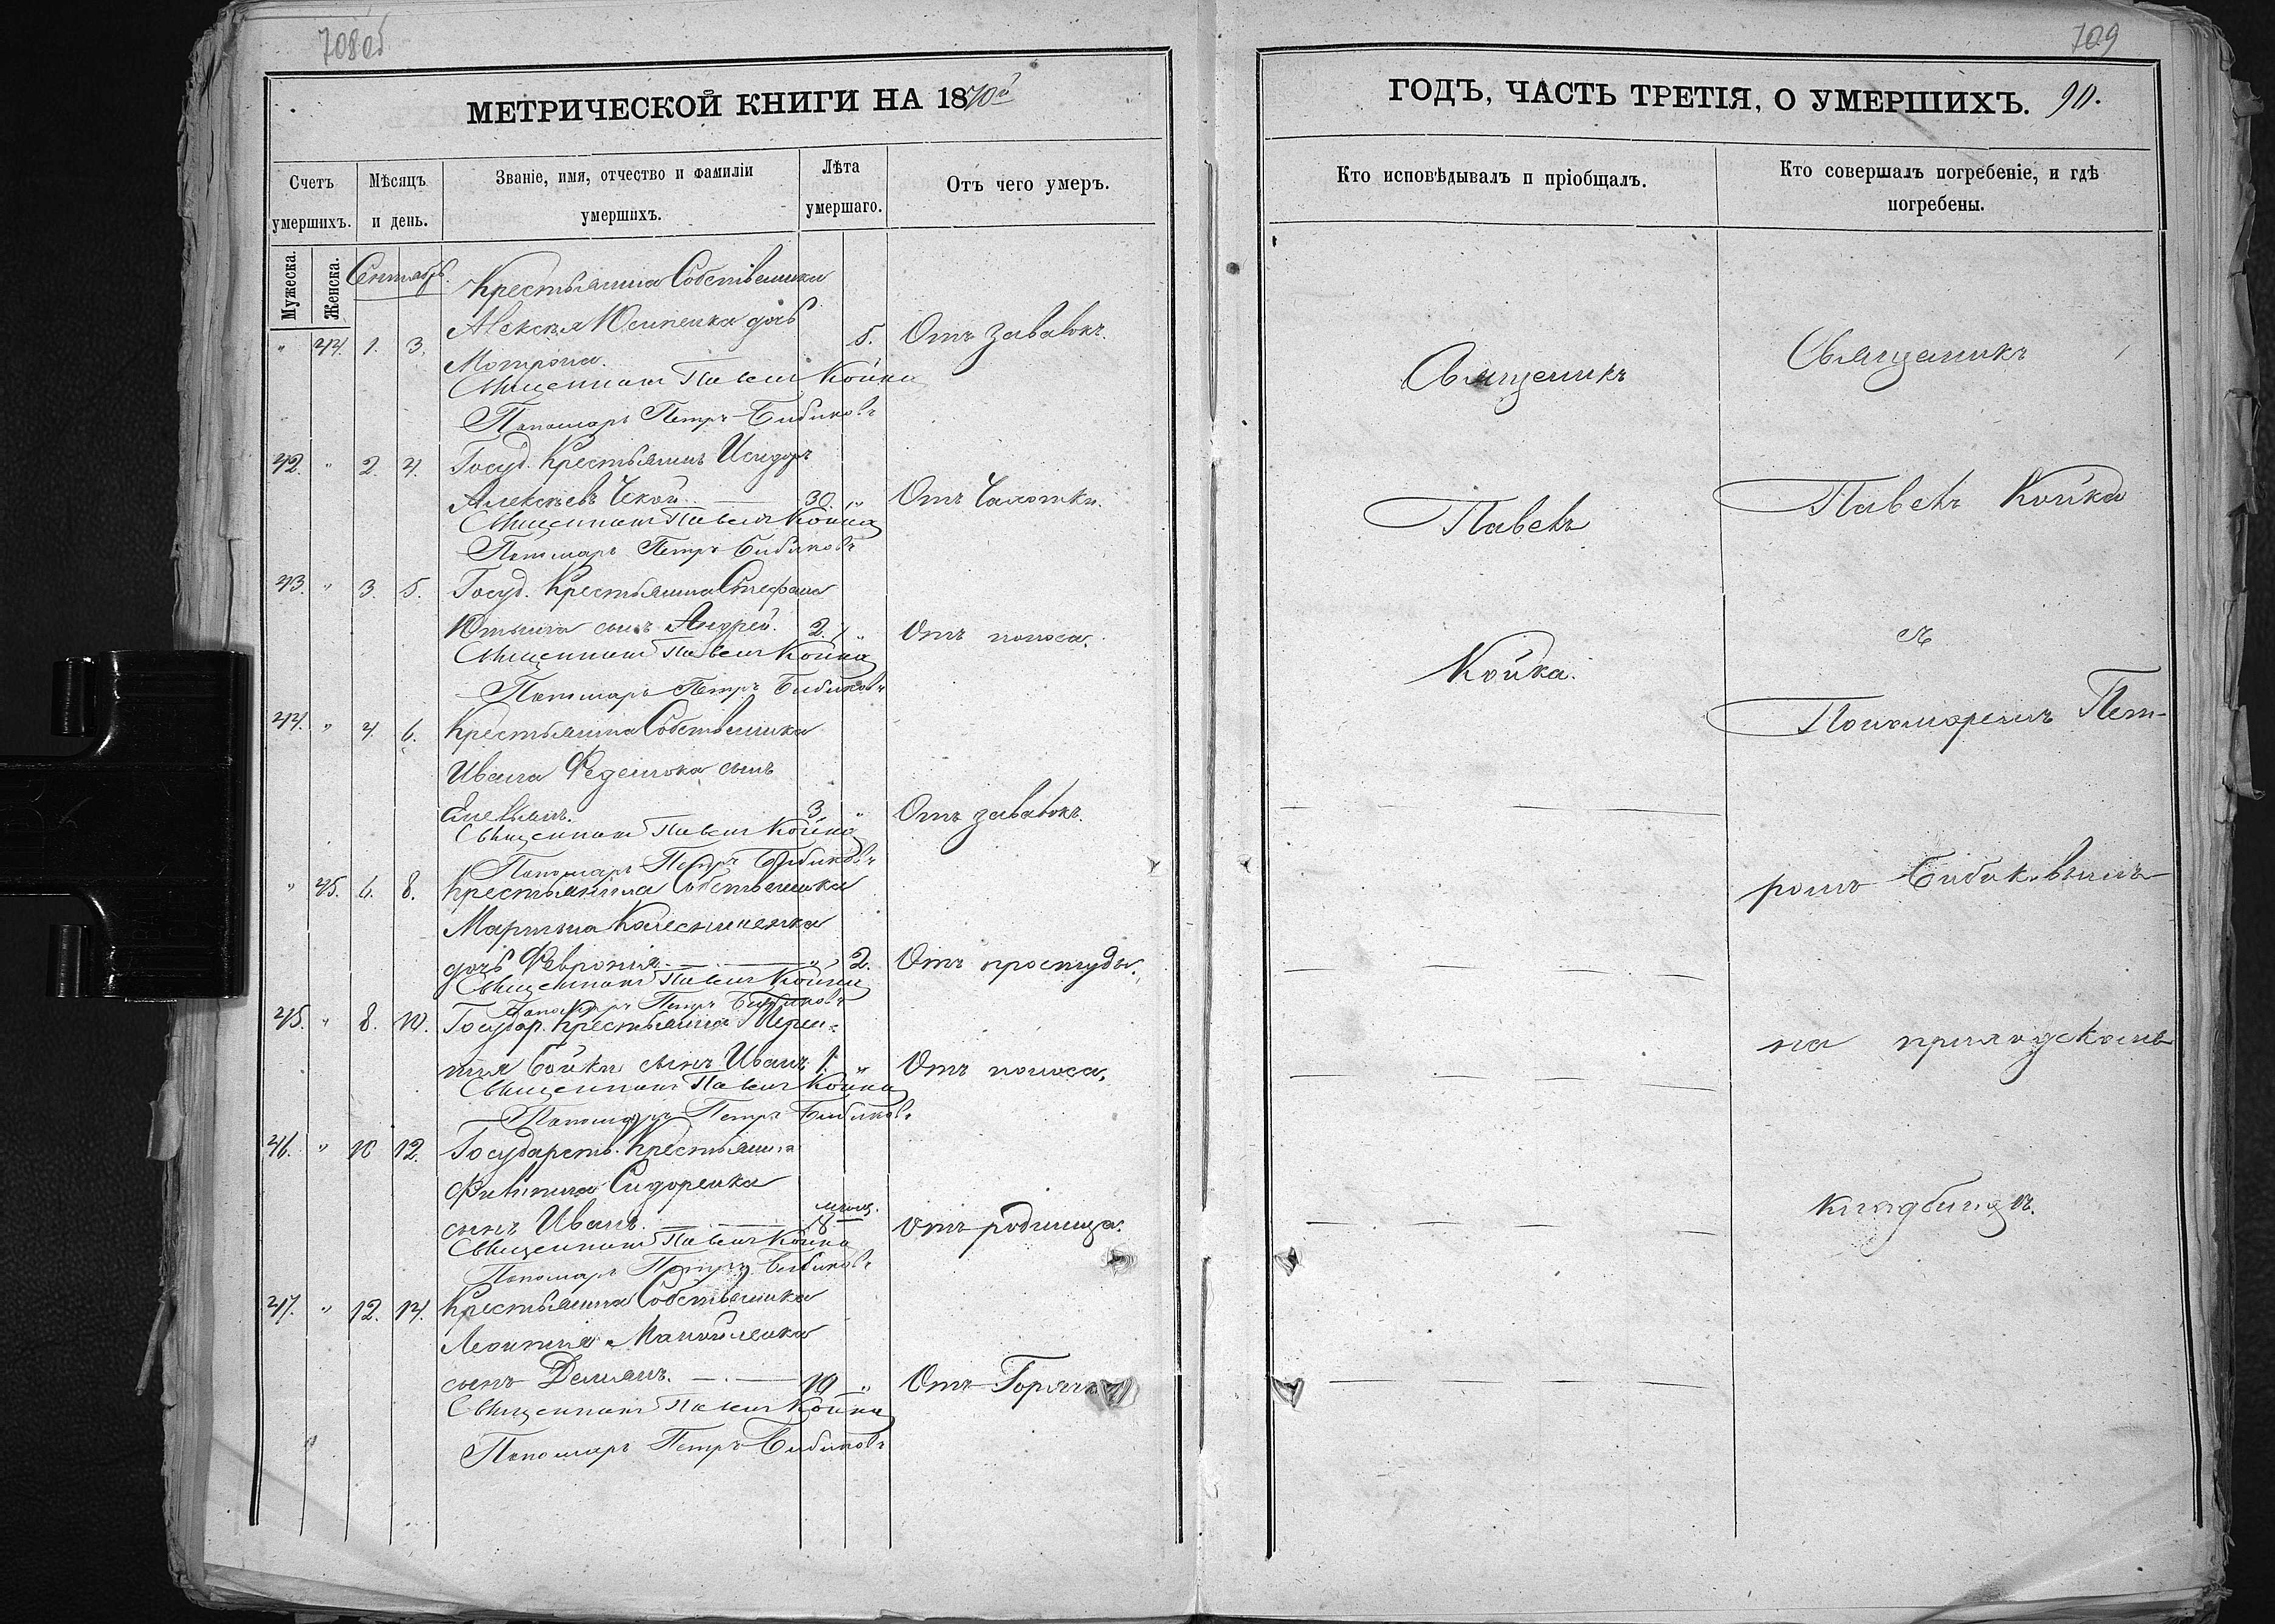 708об
МЕТРИЧЕСКОЙ КНИГИ НА 1870й
Счетъ умершихъ.
Мѣсяцъ и день.
Званіе, имя, отчество и фамиліи умершихъ.
Лѣта умершаго.
Отъ чего умеръ.
Мужеска.
Женска.
Сентябрь.
Крестьянина Собственника
" 44. 1. 3. Алексѣя Юсипенка дочь 5. Отъ
Мотрона.
Священникъ Павелъ Койка
Пономарь Петръ Бибиковъ
42. " 2. 4. Госуд. Крестьянинъ Исидоръ
Алексѣевъ 30. " Отъ Чахотки.
Священникъ Павелъ Койка
Пономарь Петръ Бибиковъ
43. " 3. 5. Госуд. Крестьянина Стефана
сынъ Андрей. 2. " Отъ поноса.
Священникъ Павелъ Койка
Пономарь Петръ Бибиковъ
44. " 4. 6. Крестьянина Собственника
Ивана Феденока сынъ
3 " Отъ
Священникъ Павелъ Койка
Пономарь Петръ Бибиковъ
" 45. 6. 8. Крестьянина Собственника
Мартына
дочь Февронія. " 2. Отъ простуды.
Священникъ Павелъ Койка
Пономарь Петръ Бибиковъ
45. " 8. 10. Государ. Крестьянина Терен-
тія Бойки сынъ Иванъ 1. " Отъ поноса.
Священникъ Павелъ Койка
Пономарь Петръ Бибиковъ
46. " 10 12. Государств. Крестьянина
Филиппа Сидоренка
сынъ Иванъ. 8 Отъ родимца.
Священникъ Павелъ Койка
Пономарь Петръ Бибиковъ
47. " 12. 14. Крестьянина Собственника
Леонтія Манойленка
сынъ Демянъ. 10 " Отъ Горячки
Священникъ Павелъ Койка
Пономарь Петръ Бибиковъ
709
ГОДЪ, ЧАСТЬ ТРЕТІЯ, О УМЕРШИХЪ. 90.
Кто исповѣдывалъ и пріобщалъ.
Кто совершалъ погребеніе, и гдѣ погребены.
Священикъ
Павелъ
Койка.
Священикъ
Павелъ Койка
съ
Пономаремъ Пет-
ромъ Бибиковымъ
на приходскомъ
кладбищѣ.